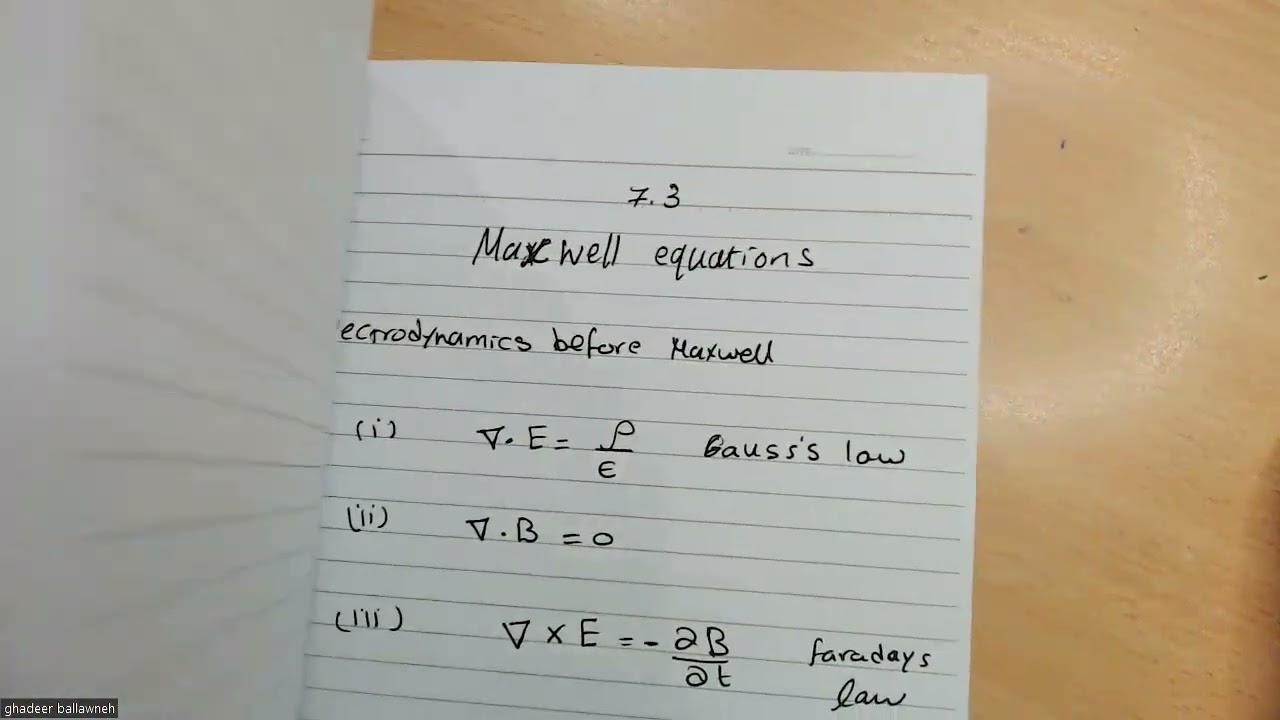 7.3
Maxwell equations
ectrodynamics before Maxwell
(i) ∇· E = ρ/ϵ Gauss's law
(ii) ∇ · B = 0
(iii) ∇ × E = - ∂B/∂t faradays
law
ghadeer ballawneh